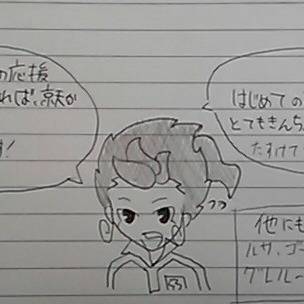 の応援
れば、京天が
す!
はじめての
とてもきんち
たすけて
他にも
ルサ、ゴー
グレルー